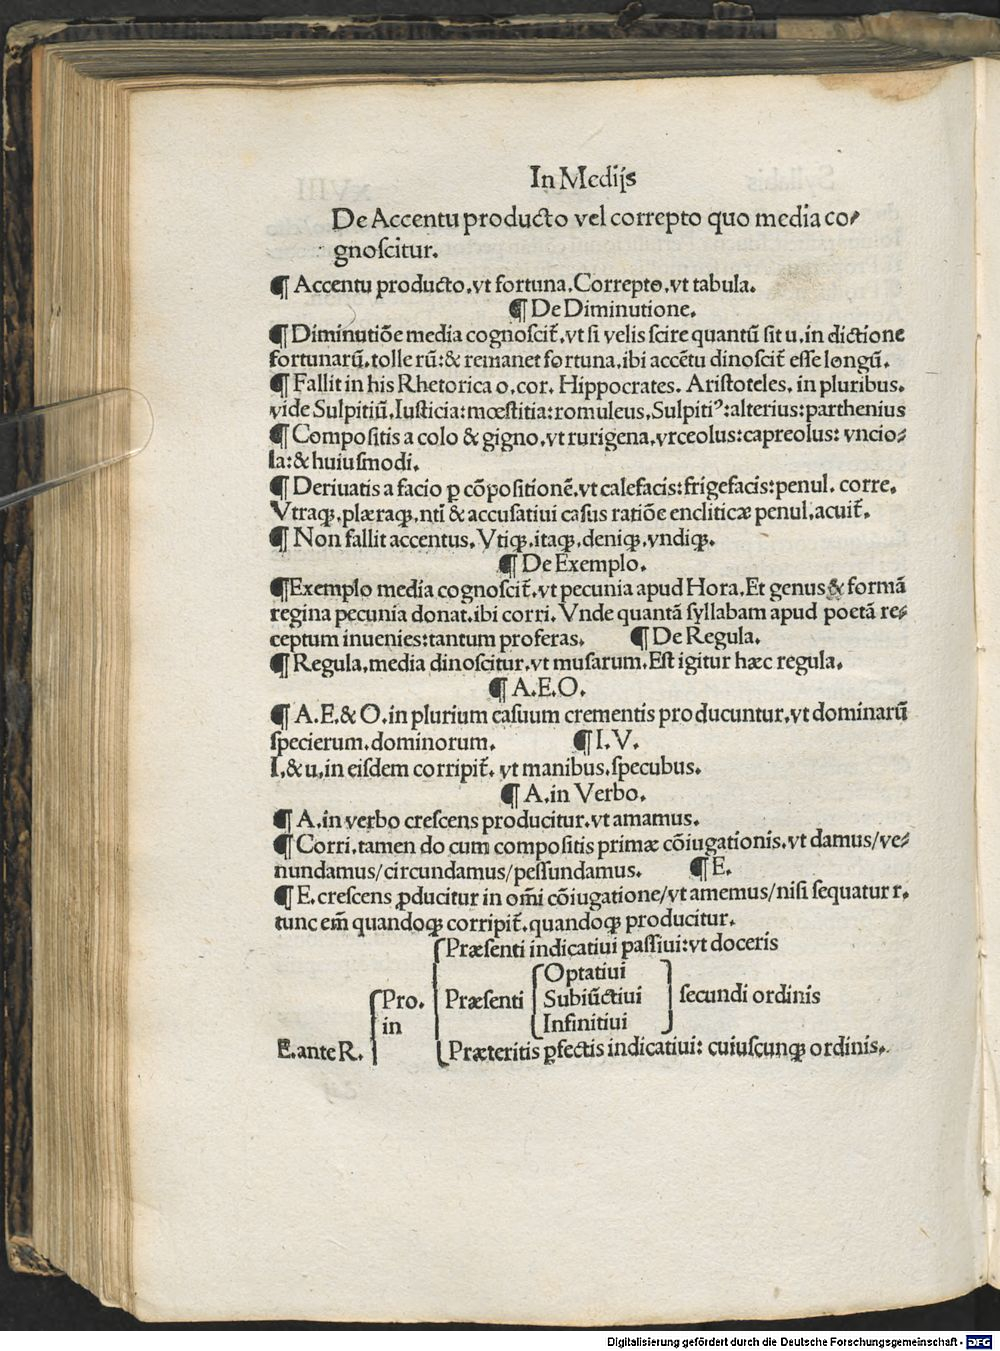 In Medijs
De Accentu producto vel correpto quo media co-
gnoſcitur.
¶ Accentu producto, vt fortuna, Correpto, vt tabula.
¶ De Diminutione.
¶ Diminutiõe media cognoſcit̃, vt ſi velis ſcire quantũ ſit u, in dictione
fortunarũ, tolle rũ: & remanet fortuna, ibi accẽtu dinoſcit̃ eſſe longũ.
¶ Fallit in his Rhetorica o, cor. Hippocrates. Ariſtoteles, in pluribus,
vide Sulpitiũ, Iuſticia: mœſtitia: romuleus, Sulpitiꝰ: alterius: parthenius
¶ Compoſitis a colo & gigno, vt rurigena, vrceolus: capreolus: vncio-
la: & huiuſmodi.
¶ Deriuatis a facio ꝑ cõpoſitionẽ, vt calefacis: frigefacis: penul. corre.
Vtraqꝫ, plæraqꝫ, ntĩ & accuſatiui caſus ratiõe encliticæ penul, acuit̃.
¶ Non fallit accentus, Vtiqꝫ, itaqꝫ, deniqꝫ, vndiqꝫ.
¶ De Exemplo.
¶ Exemplo media cognoſcit̃, vt pecunia apud Hora, Et genus & formã
regina pecunia donat, ibi corri. Vnde quantã ſyllabam apud poetã re-
ceptum inuenies: tantum proferas. ¶ De Regula.
¶ Regula, media dinoſcitur, vt muſarum, Eſt igitur hæc regula.
¶ A.E.O.
¶ A.E.& O. in plurium caſuum crementis producuntur, vt dominarũ
ſpecierum, dominorum. ¶ I.V.
I, & u, in eiſdem corripit̃, vt manibus, ſpecubus.
¶ A. in Verbo.
¶ A. in verbo creſcens producitur, vt amamus.
¶ Corri, tamen do cum compoſitis primæ cõiugationis, vt damus/ve-
nundamus/circundamus/peſſundamus. ¶ E.
¶ E. creſcens ꝓducitur in om̃i cõiugatione/vt amemus/niſi ſequatur r.
tunc em̃ quandoqꝫ corripit̃, quandoqꝫ producitur.
Præſenti indicatiui paſſiui: vt doceris
Optatiui
Pro. Præſenti Subiũctiui ſecundi ordinis
in Infinitiui
E. ante R. Præteritis ꝑfectis indicatiui: cuiuſcunqꝫ ordinis.
Digitalisierung gefördert durch die Deutsche Forschungsgemeinschaft - DFG